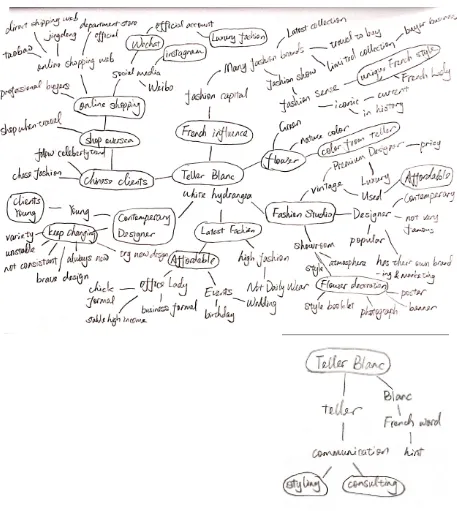 direct shopping web
department store
official account
Latest collection
jingdong
official
Wechat
Luxury fashion
travel to buy
buyer business
taobao
instagram
Many fashion brands
limited collection
online shopping web
unique French style
social media
fashion show
professional buyers
Weibo
French lady
online shopping
fashion capital
fashion sense
iconic
current
in history
shop when travel
Green
French influence
nature color
shop oversea
color from teller
flower
follow celeberty trend
Premium Designer
pricy
chase fashion
Chinese clients
Teller Blanc
Luxury
Affordable
white hydrangia
vintage
Used
Contemporary
Clients Young
Young
Contemporary Designer
Fashion Studio
Designer
not very famous
variety
keep changing
Latest Fashion
unstable
showroom
popular
not consistant
always new
try new design
Affordable
high fashion
atmosphere
has their own brand
brave design
style
ing & marketing
chick
office Lady
Not Daily Wear
Flower decoration
formal
Events
poster
business formal
Wedding
style booklet
stable high income
birthday
photograph
banner
Teller Blanc
Blanc
teller
French word
communication
hint
styling
consulting